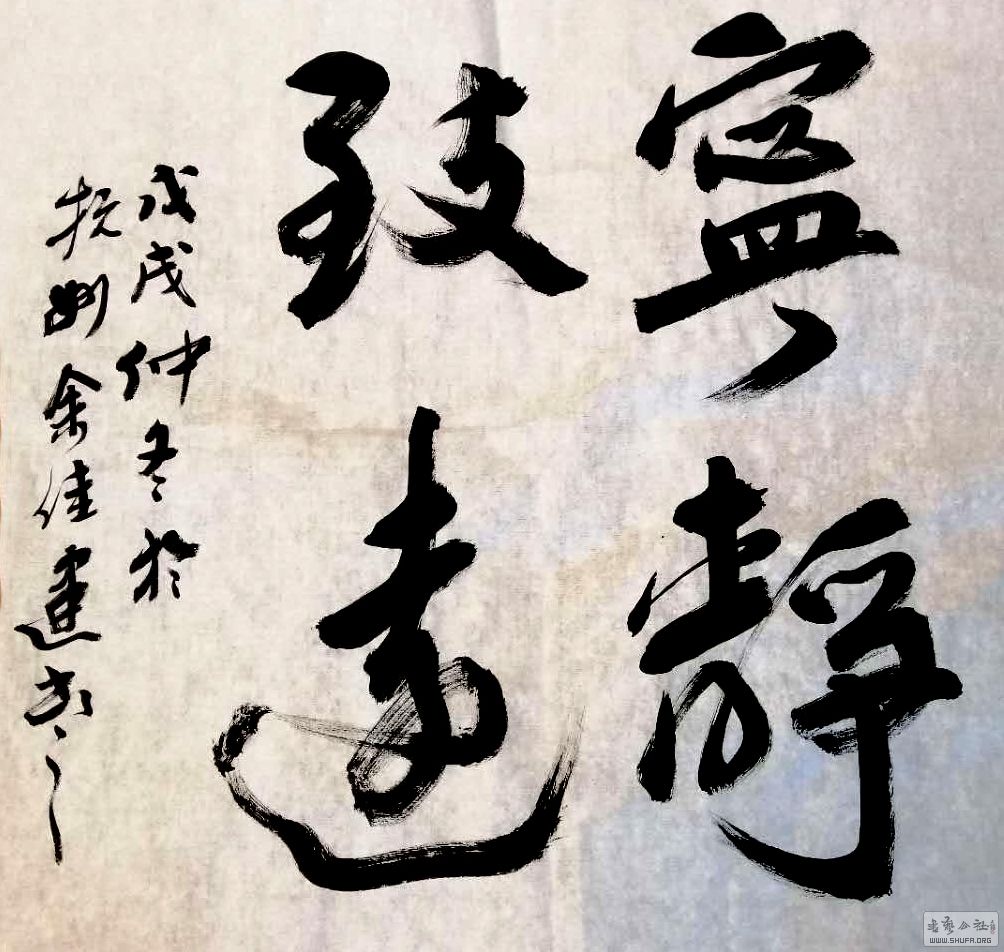 寧靜
致遠
戊戌仲冬於
杭州余佳建书
书艺公社
WWW.SHUFA.ORG